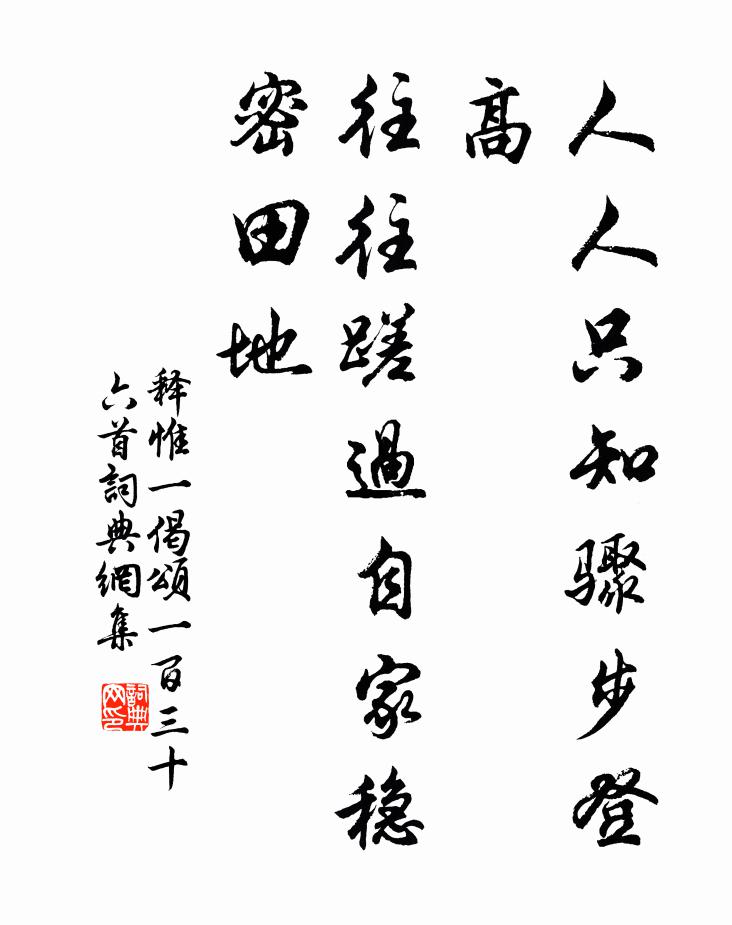 人人只知骤步登
高
往往蹉過自家稳
密田地
释惟一偈頌一百三十
六首詞典網集
詞典
网印